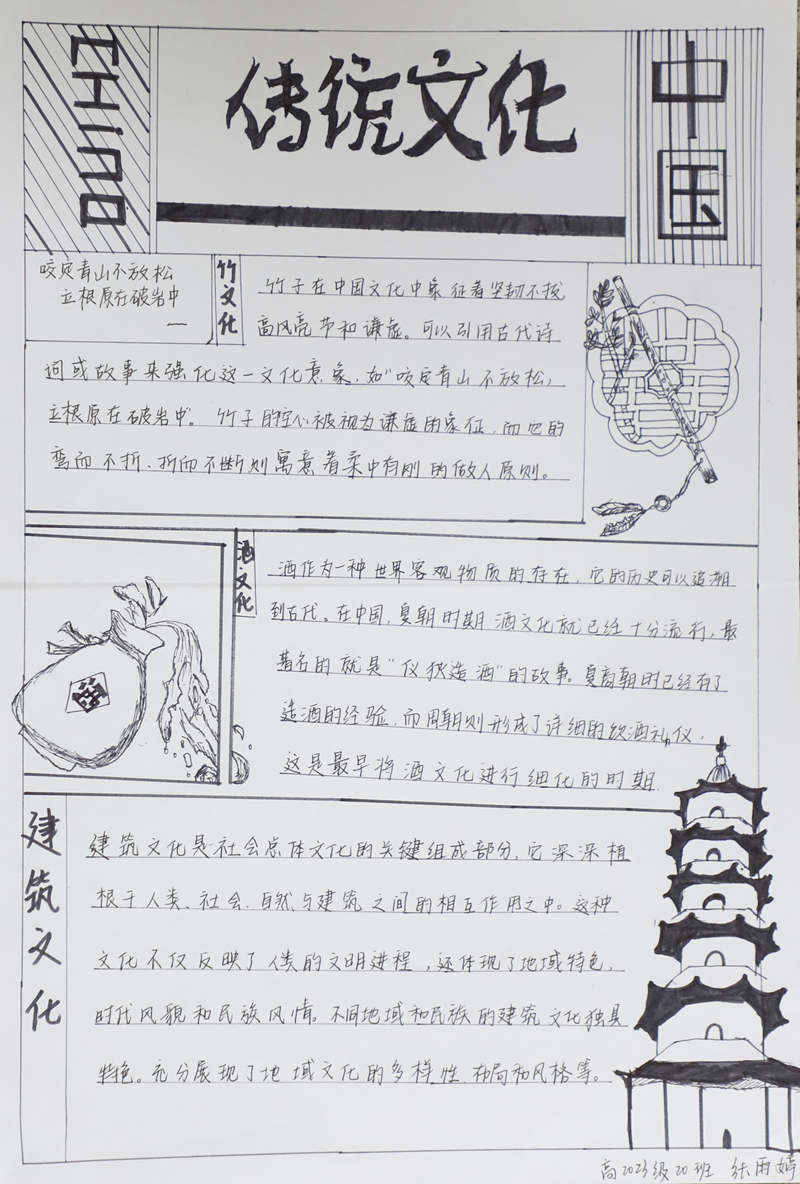 China
传统文化
中国
咬定青山不放松
立根原在破岩中
竹文化
竹子在中国文化中象征着坚韧不拔
高风亮节和谦虚。可以引用古代诗
词或故事来强化这一文化意象，如“咬定青山不放松，
立根原在破岩中”。竹子的空心被视为谦虚的象征，而它的
弯而不折、折而不断则寓意着柔中有刚的做人原则。
酒文化
酒作为一种世界客观物质的存在，它的历史可以追溯
到古代。在中国，夏朝时期酒文化就已经十分流行，最
著名的就是“仪狄造酒”的故事。夏商朝时已经有了
造酒的经验，而周朝则形成了详细的饮酒礼仪，
这是最早将酒文化进行细化的时期
建筑文化
建筑文化是社会总体文化的关键组成部分，它深深植
根于人类、社会、自然与建筑之间的相互作用之中。这种
文化不仅反映了人类的文明进程，还体现了地域特色，
时代风貌和民族风情。不同地域和民族的建筑文化独具
特色。充分展现了地域文化的多样性、布局和风格等。
高2023级20班 张雨婷